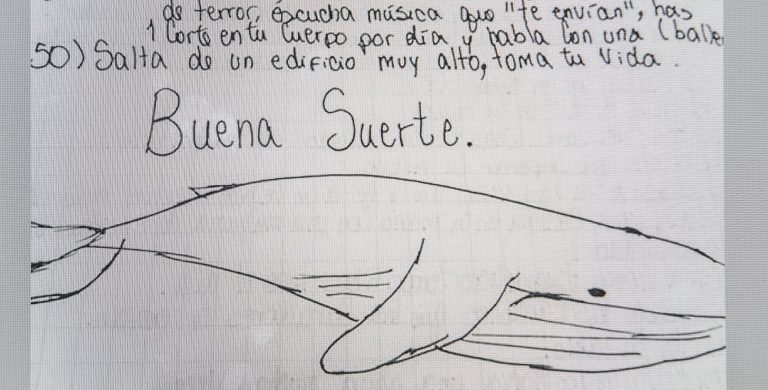 de terror, escucha música que "te envían", has
1 corte en tu cuerpo por día y habla con una (balle
50) Salta de un edificio muy alto, toma tu vida.
Buena Suerte.